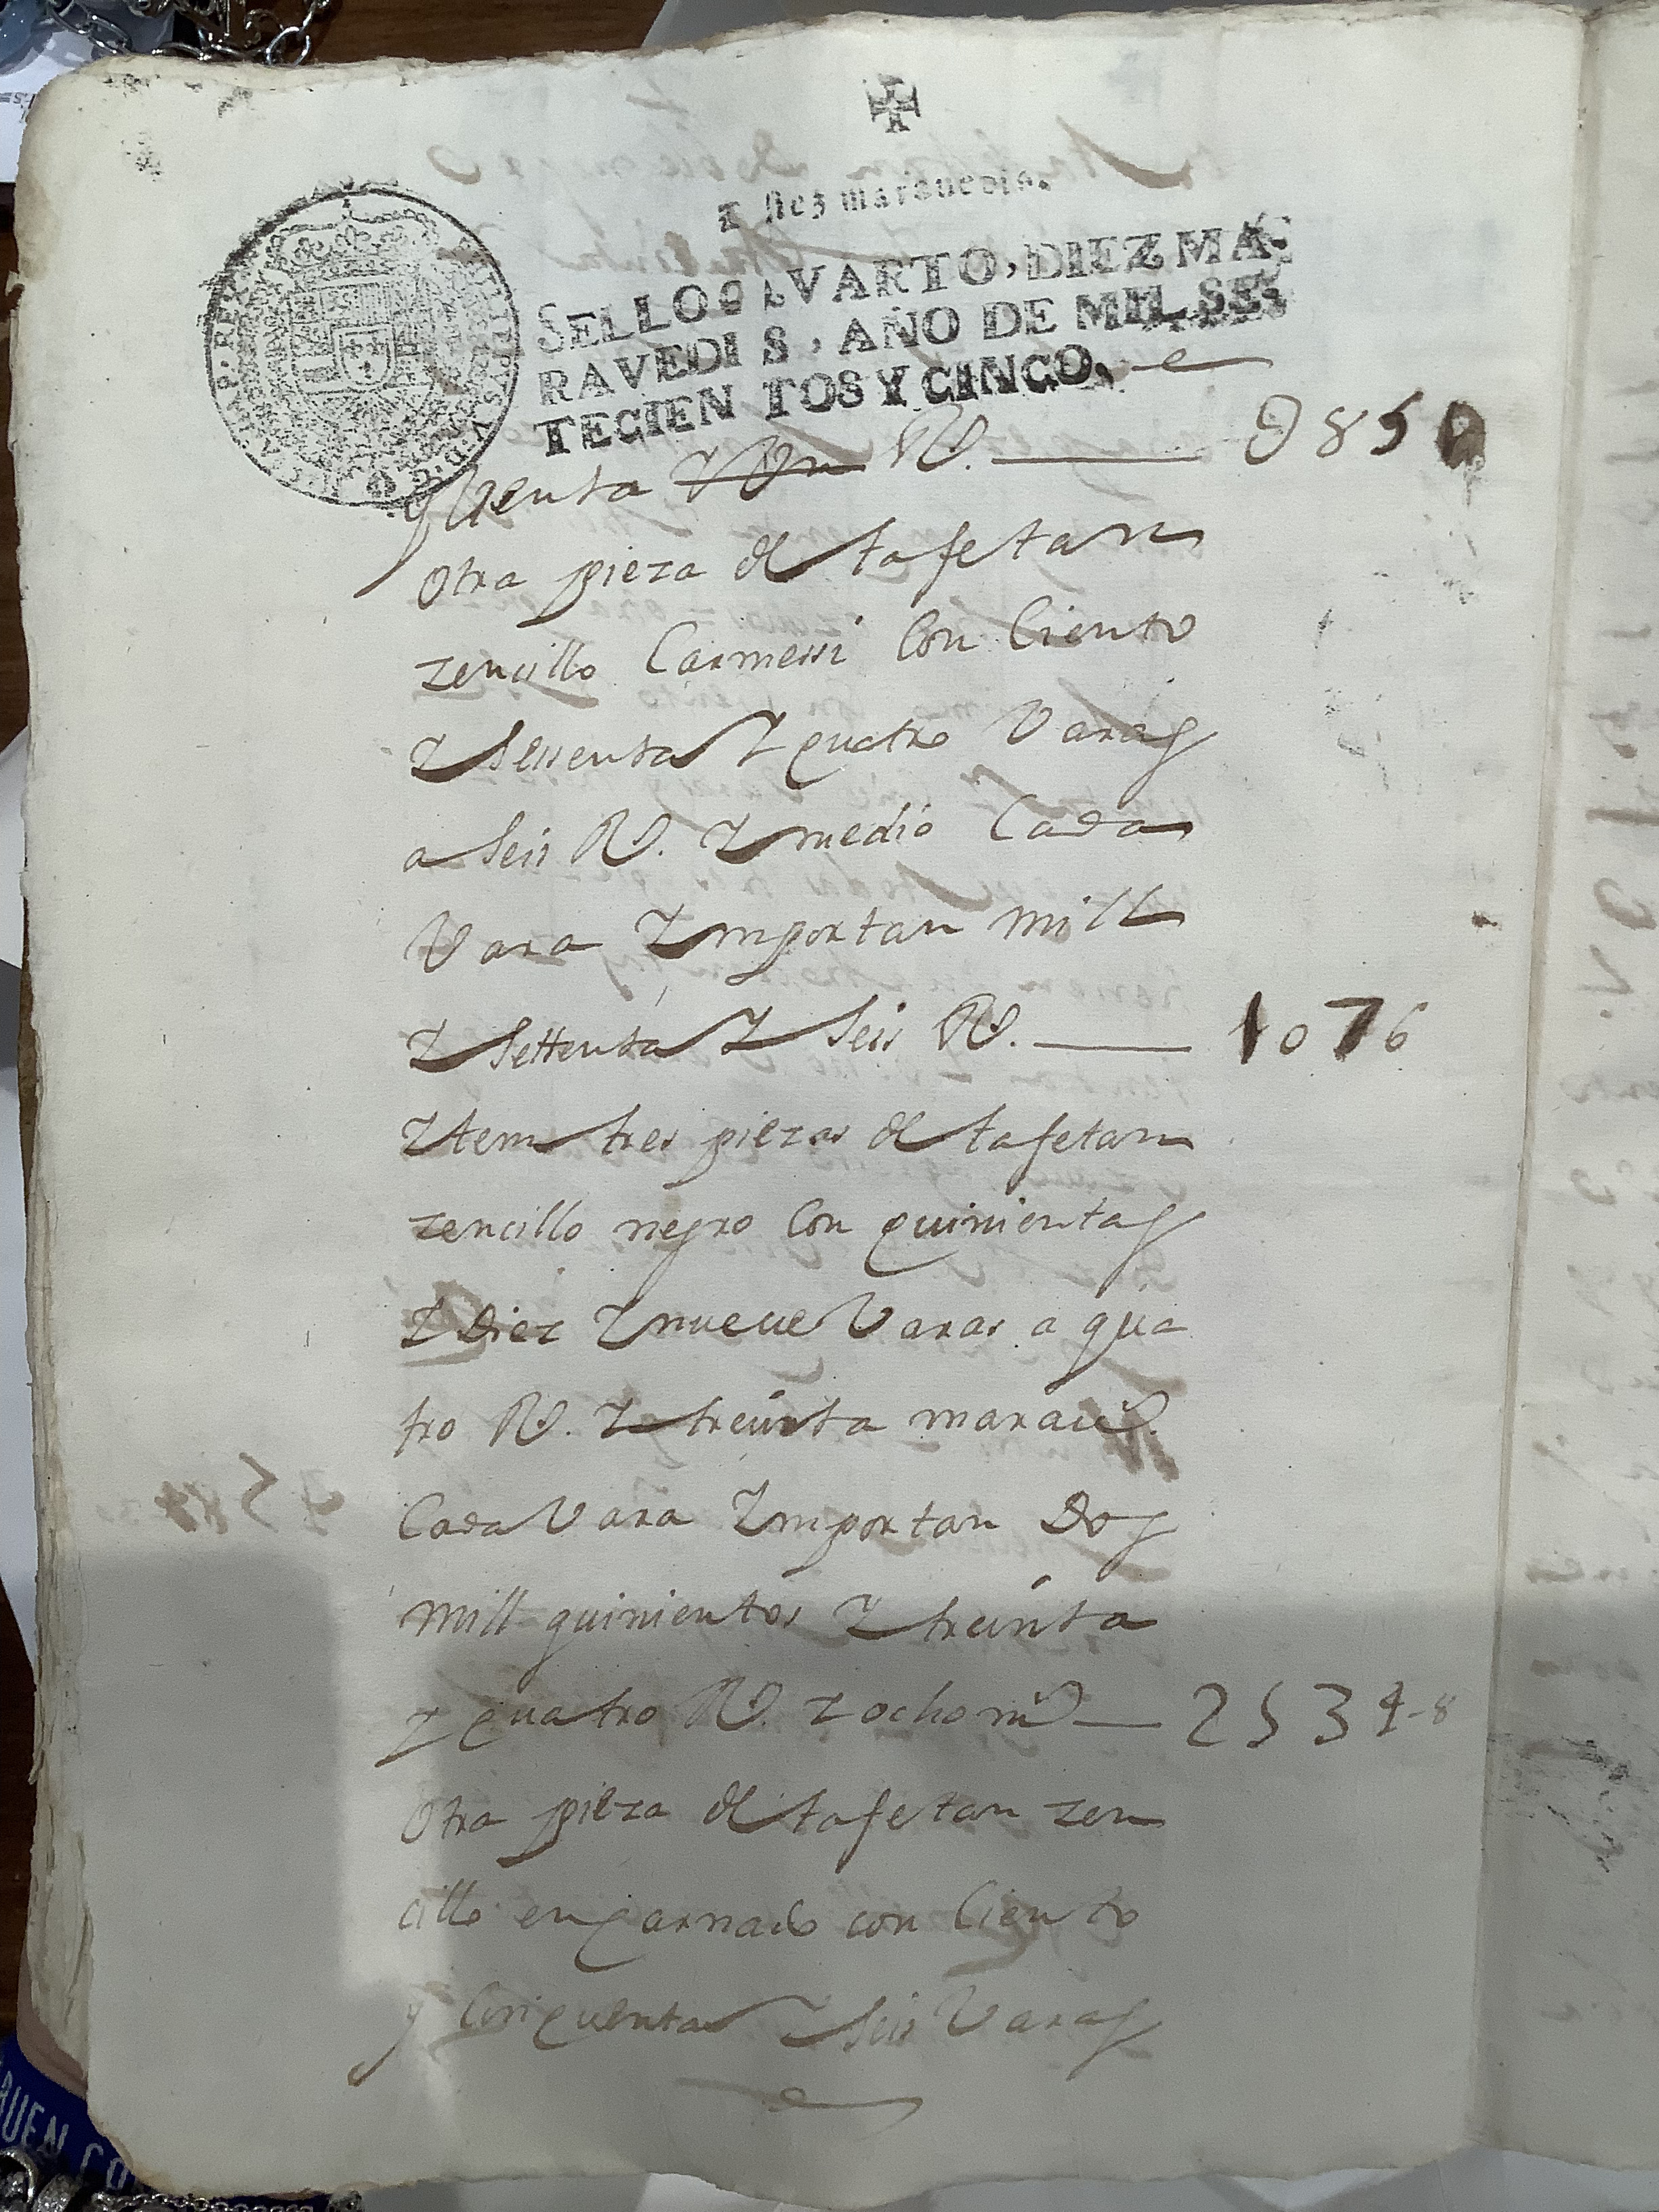 diez maravedis.
SELLO QVARTO, DIEZ MA-
RAVEDIS, AÑO DE MIL SE-
TECIENTOS Y CINCO.
quenta RS. 850
Otra pieza de tafetan
zencillo Carmessi Con Ciento
Y Sessenta Y quatro Varas
a Seis RS. Y medio Cada
Vara Ymportan mill
Y Settenta Y Seis RS. 1076
Ytem tres piezas de tafetan
zencillo negro Con quinientas
Y Diez Y nueue Varas a qua
tro RS. Y treinta maraues.
Cada Vara Ymportan Dos
mill quinientos Y treinta
Y quatro RS. Y ocho ms 2534-8
Otra pieza de tafetan zen
cillo encarnado con Ciento
y Cinquenta Y Seis Varas
BUEN CO